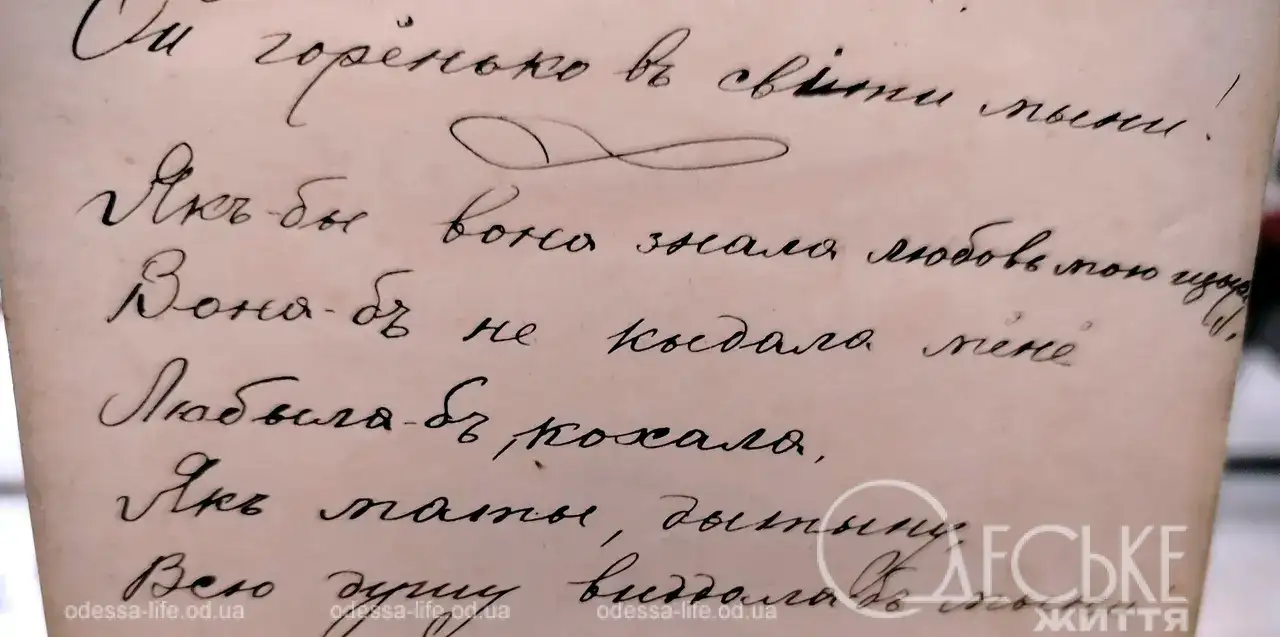 Ой горёнько въ свiти мыни!
Якъ-бы вона знала любовь мою щыру,
Вона-бъ не кыдала мёнё
Любыла-бъ, кохала,
Якъ маты, дытыну,
Всю душу виддала бъ
Одеське
життя
odessa-life.od.ua odessa-life.od.ua odessa-life.od.ua